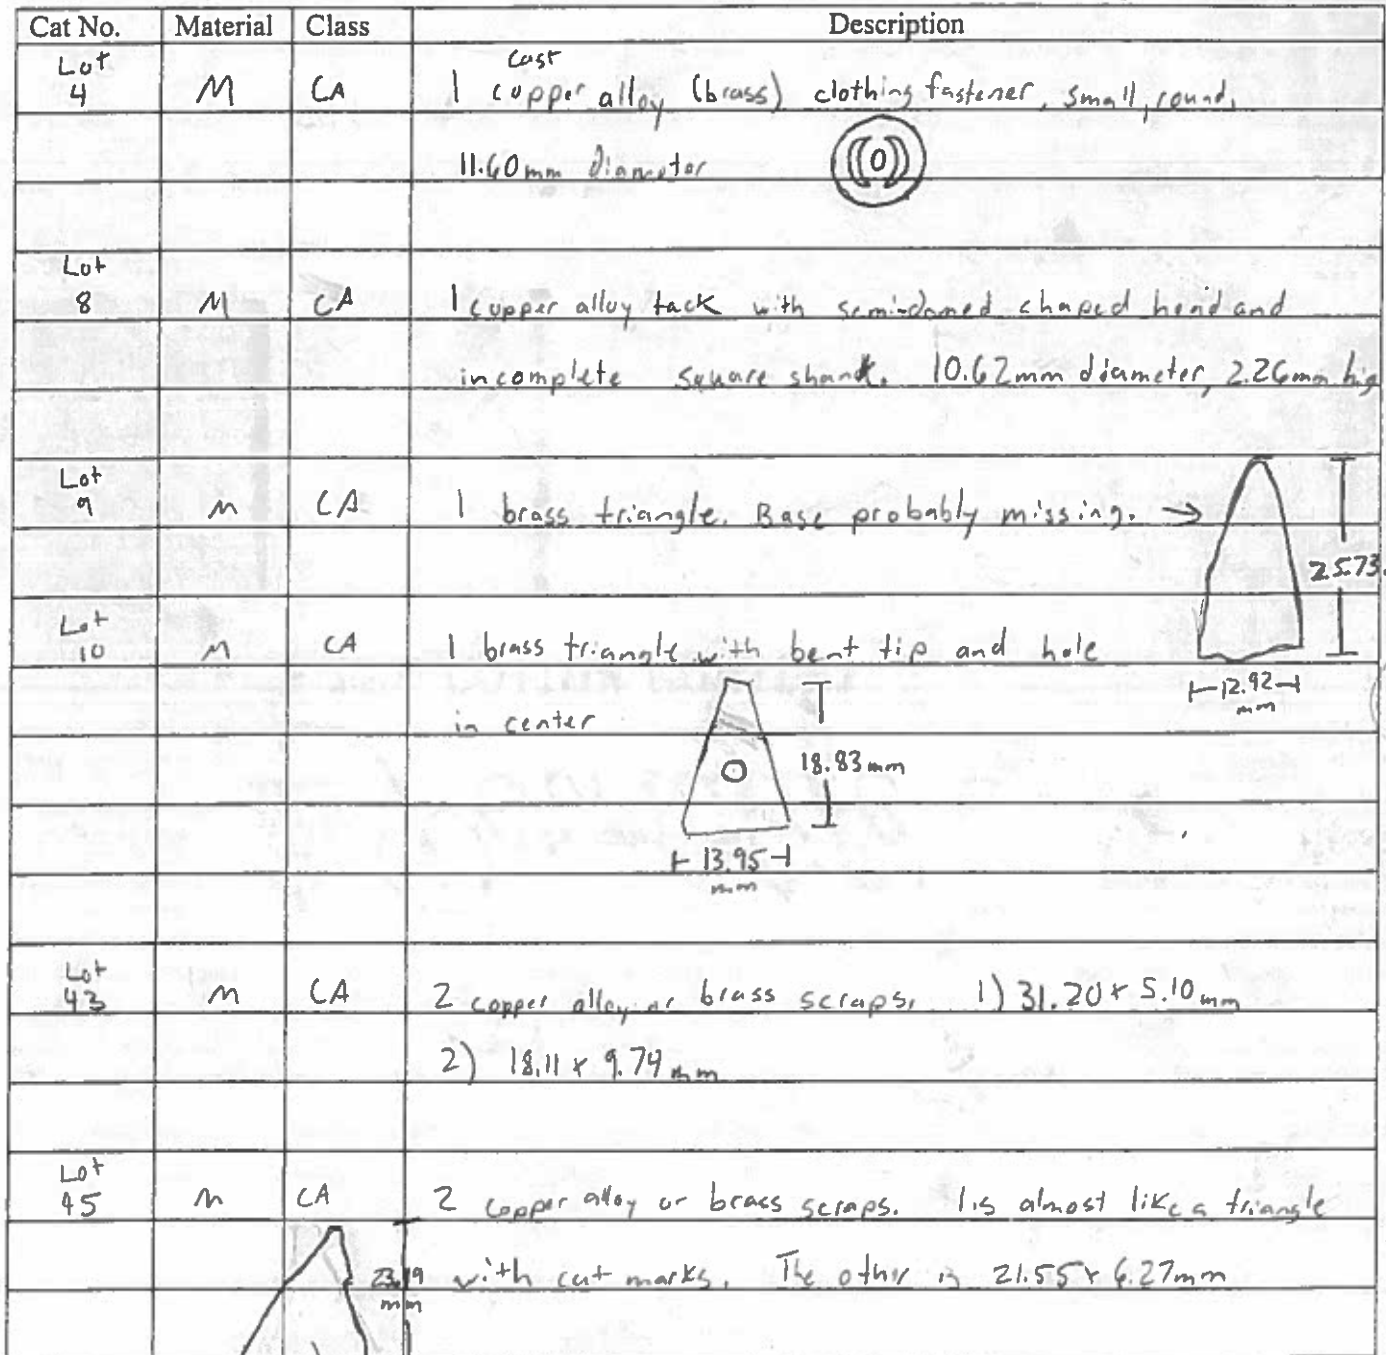 Cat No. Material Class Description
Lot
4 M CA 1 cast copper alloy (brass) clothing fastener, small, round,
11.60mm diameter
Lot
8 M CA 1 copper alloy tack with semi-domed shaped head and
incomplete square shank. 10.62mm diameter, 2.26mm hig
Lot
9 M CA 1 brass triangle. Base probably missing. →
25.73
Lot
10 M CA 1 brass triangle with bent tip and hole
12.92
mm
in center
18.83mm
13.95
mm
Lot
43 M CA 2 copper alloy or brass scraps. 1) 31.20 x 5.10mm
2) 18.11 x 9.74mm
Lot
45 M CA 2 copper alloy or brass scraps. 1 is almost like a triangle
23.19
mm
with cut marks. The other is 21.55 x 6.27mm